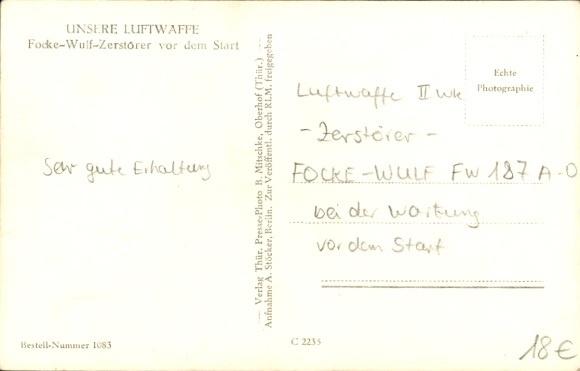 UNSERE LUFTWAFFE
Focke-Wulf-Zerstörer vor dem Start
Sehr gute Erhaltung
Bestell-Nummer 1083
Verlag Thür. Presse-Photo B. Mitschke, Oberhof (Thür.)
Aufnahme A. Stöcker, Berlin. Zur Veröffentl. durch RLM. freigegeben
Echte
Photographie
Luftwaffe II wk
- Zerstörer -
FOCKE-WULF FW 187 A-0
bei der Wartung
vor dem Start
C 2235
18 €